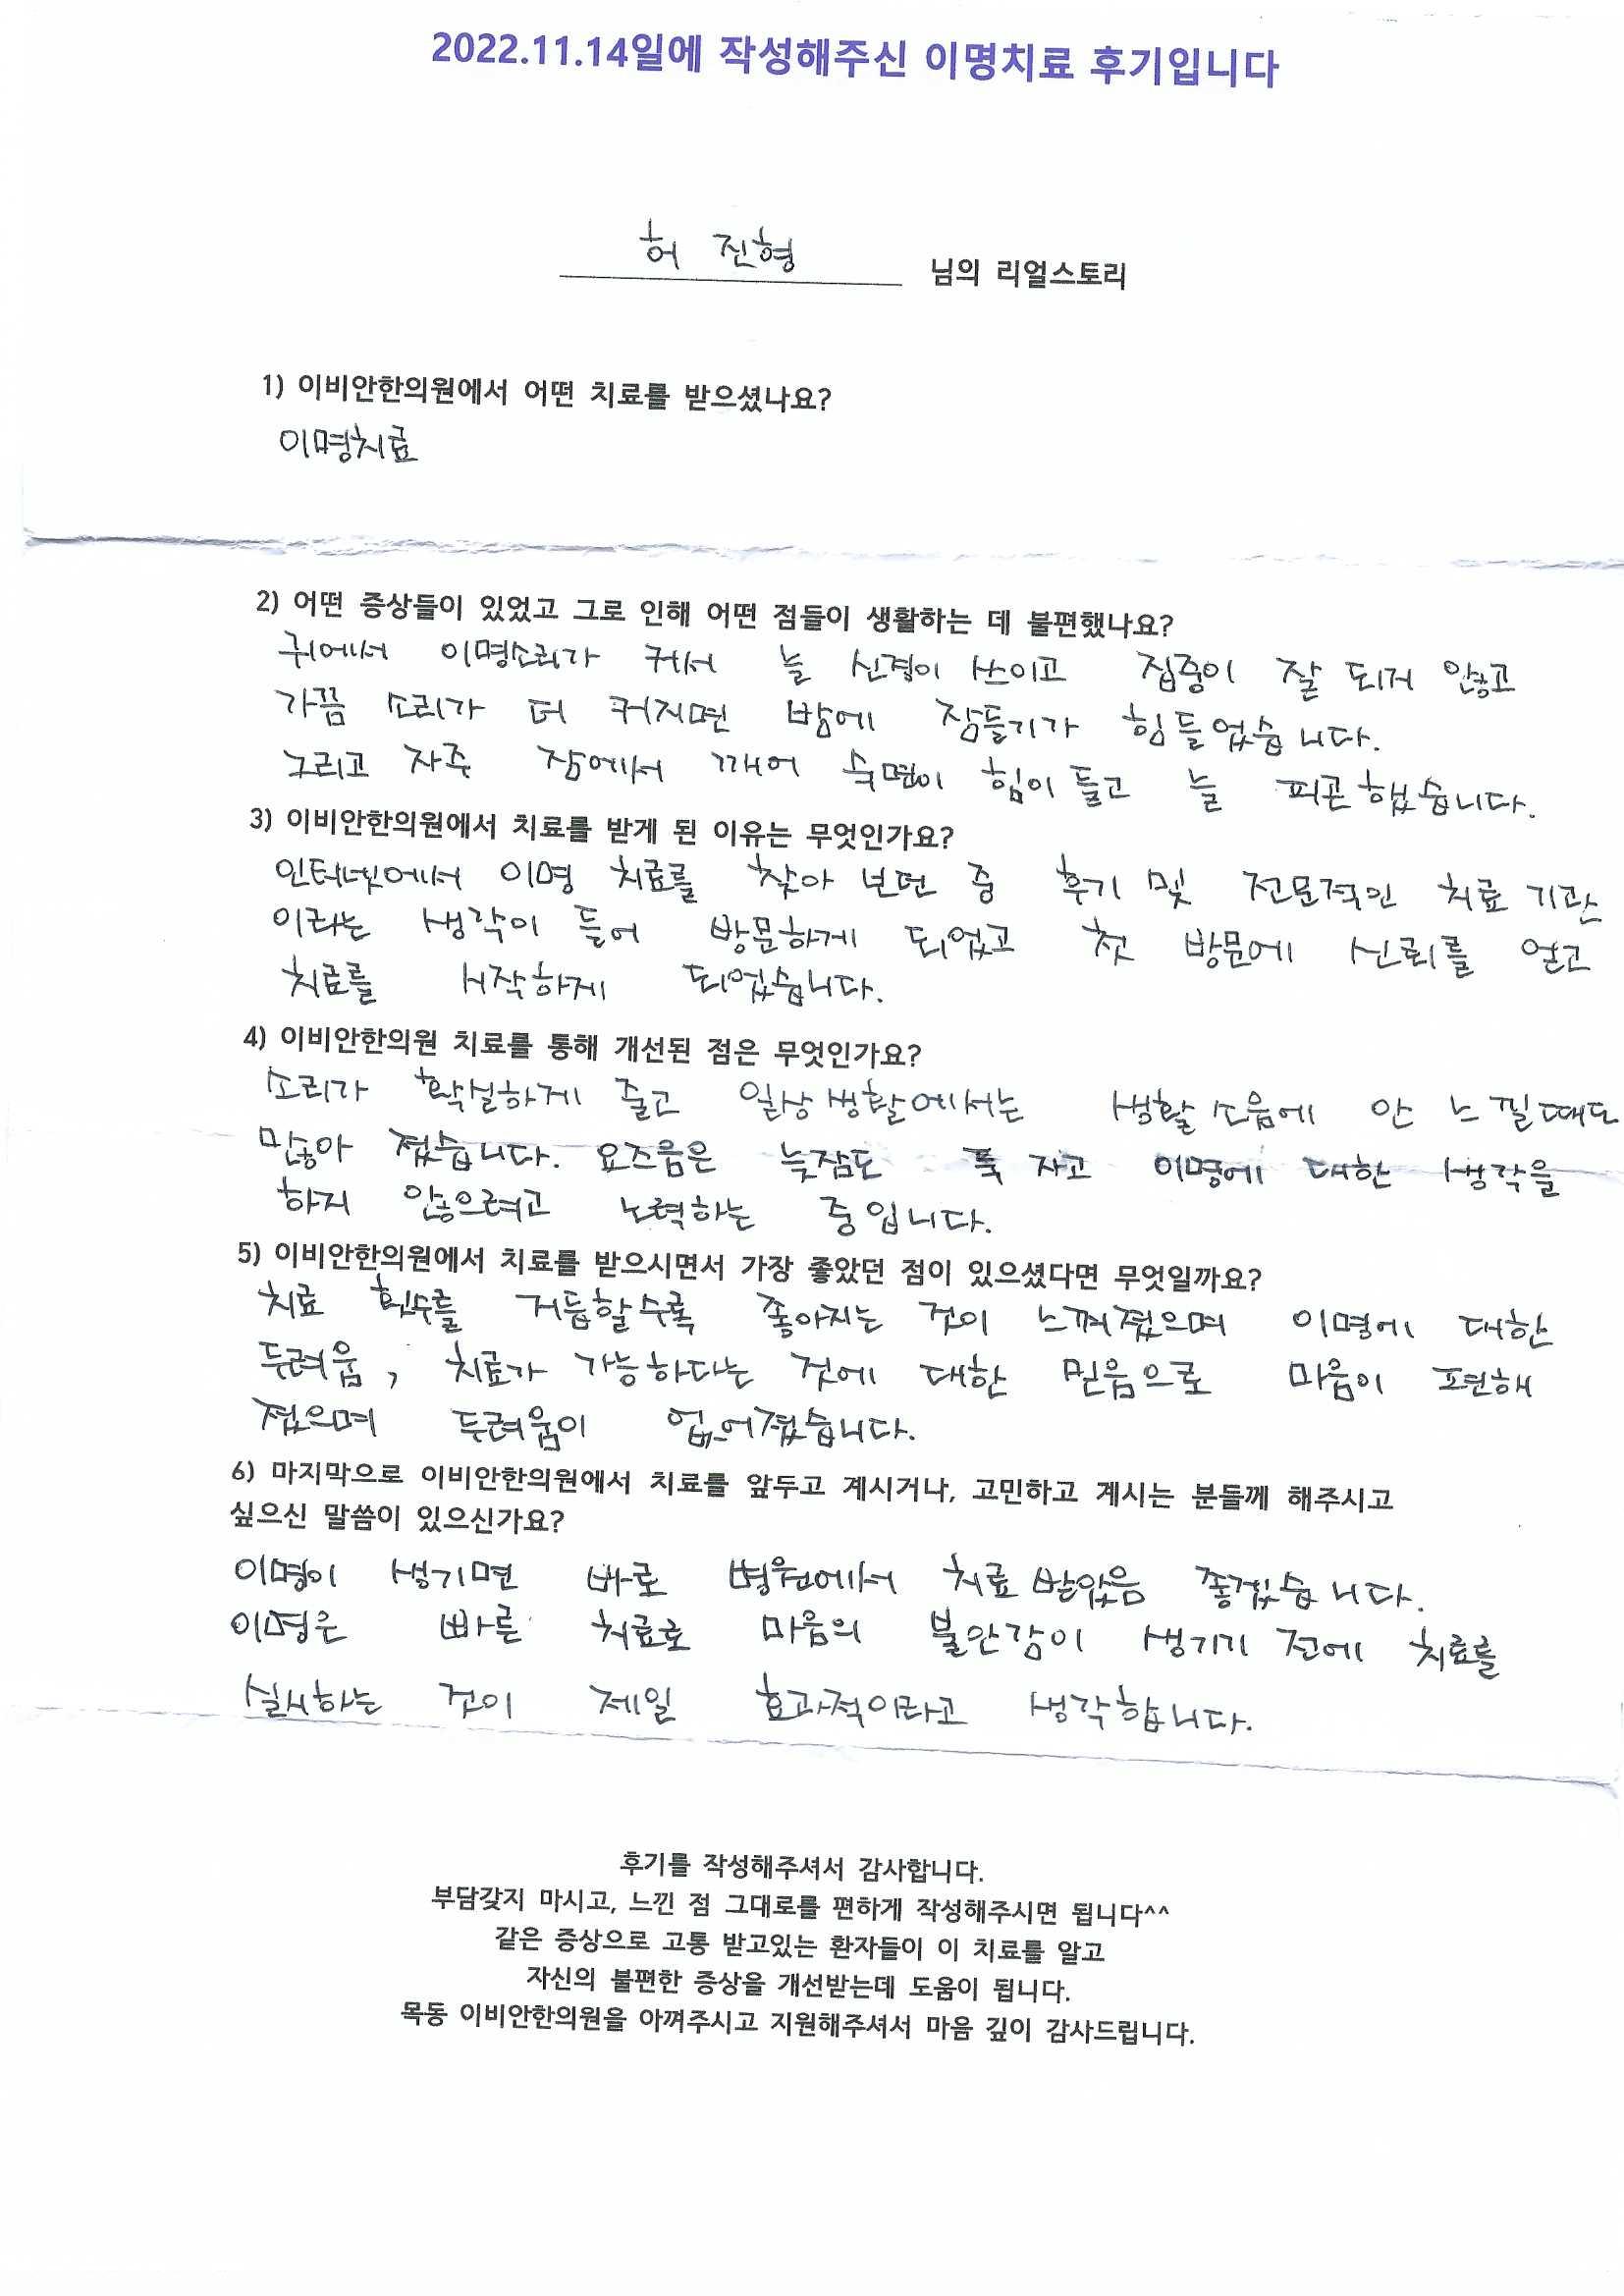 2022.11.14일에 작성해주신 이명치료 후기입니다
허 진형 님의 리얼스토리
1) 이비안한의원에서 어떤 치료를 받으셨나요?
이명치료
2) 어떤 증상들이 있었고 그로 인해 어떤 점들이 생활하는 데 불편했나요?
귀에서 이명소리가 커서 늘 신경이 쓰이고 집중이 잘 되지 않고
가끔 소리가 더 커지면 밤에 잠들기가 힘들었습니다.
그리고 자주 잠에서 깨어 숙면이 힘이 들고 늘 피곤했습니다.
3) 이비안한의원에서 치료를 받게 된 이유는 무엇인가요?
인터넷에서 이명 치료를 찾아 보던 중 후기 및 전문적인 치료 기관
이라는 생각이 들어 방문하게 되었고 첫 방문에 신뢰를 얻고
치료를 시작하게 되었습니다.
4) 이비안한의원 치료를 통해 개선된 점은 무엇인가요?
소리가 확실하게 줄고 일상생활에서는 생활 소음에 안 느낄때도
많아 졌습니다. 요즈음은 늦잠도 푹 자고 이명에 대한 생각을
하지 않으려고 노력하는 중입니다.
5) 이비안한의원에서 치료를 받으시면서 가장 좋았던 점이 있으셨다면 무엇일까요?
치료 횟수를 거듭할수록 좋아지는 것이 느껴졌으며 이명에 대한
두려움, 치료가 가능하다는 것에 대한 믿음으로 마음이 편해
졌으며 두려움이 없어졌습니다.
6) 마지막으로 이비안한의원에서 치료를 앞두고 계시거나, 고민하고 계시는 분들께 해주시고
싶으신 말씀이 있으신가요?
이명이 생기면 바로 병원에서 치료 받았음 좋겠습니다.
이명은 빠른 치료로 마음의 불안감이 생기기 전에 치료를
실시하는 것이 제일 효과적이라고 생각합니다.
후기를 작성해주셔서 감사합니다.
부담갖지 마시고, 느낀 점 그대로를 편하게 작성해주시면 됩니다^^
같은 증상으로 고통 받고있는 환자들이 이 치료를 알고
자신의 불편한 증상을 개선받는데 도움이 됩니다.
목동 이비안한의원을 아껴주시고 지원해주셔서 마음 깊이 감사드립니다.